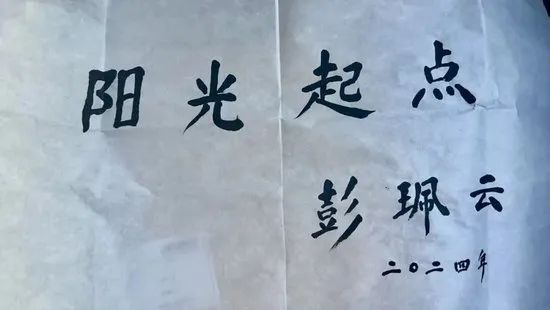 阳光起点
彭珮云
二〇二四年